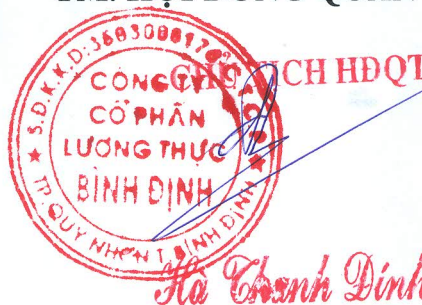 CHỦ TỊCH HĐQT
S.Đ.K.K.D:36030001
CÔNG TY
CỔ PHẦN
LƯƠNG THỰC
BÌNH ĐỊNH
TP. QUY NHƠN T. BÌNH ĐỊNH
Hà Thanh Đính